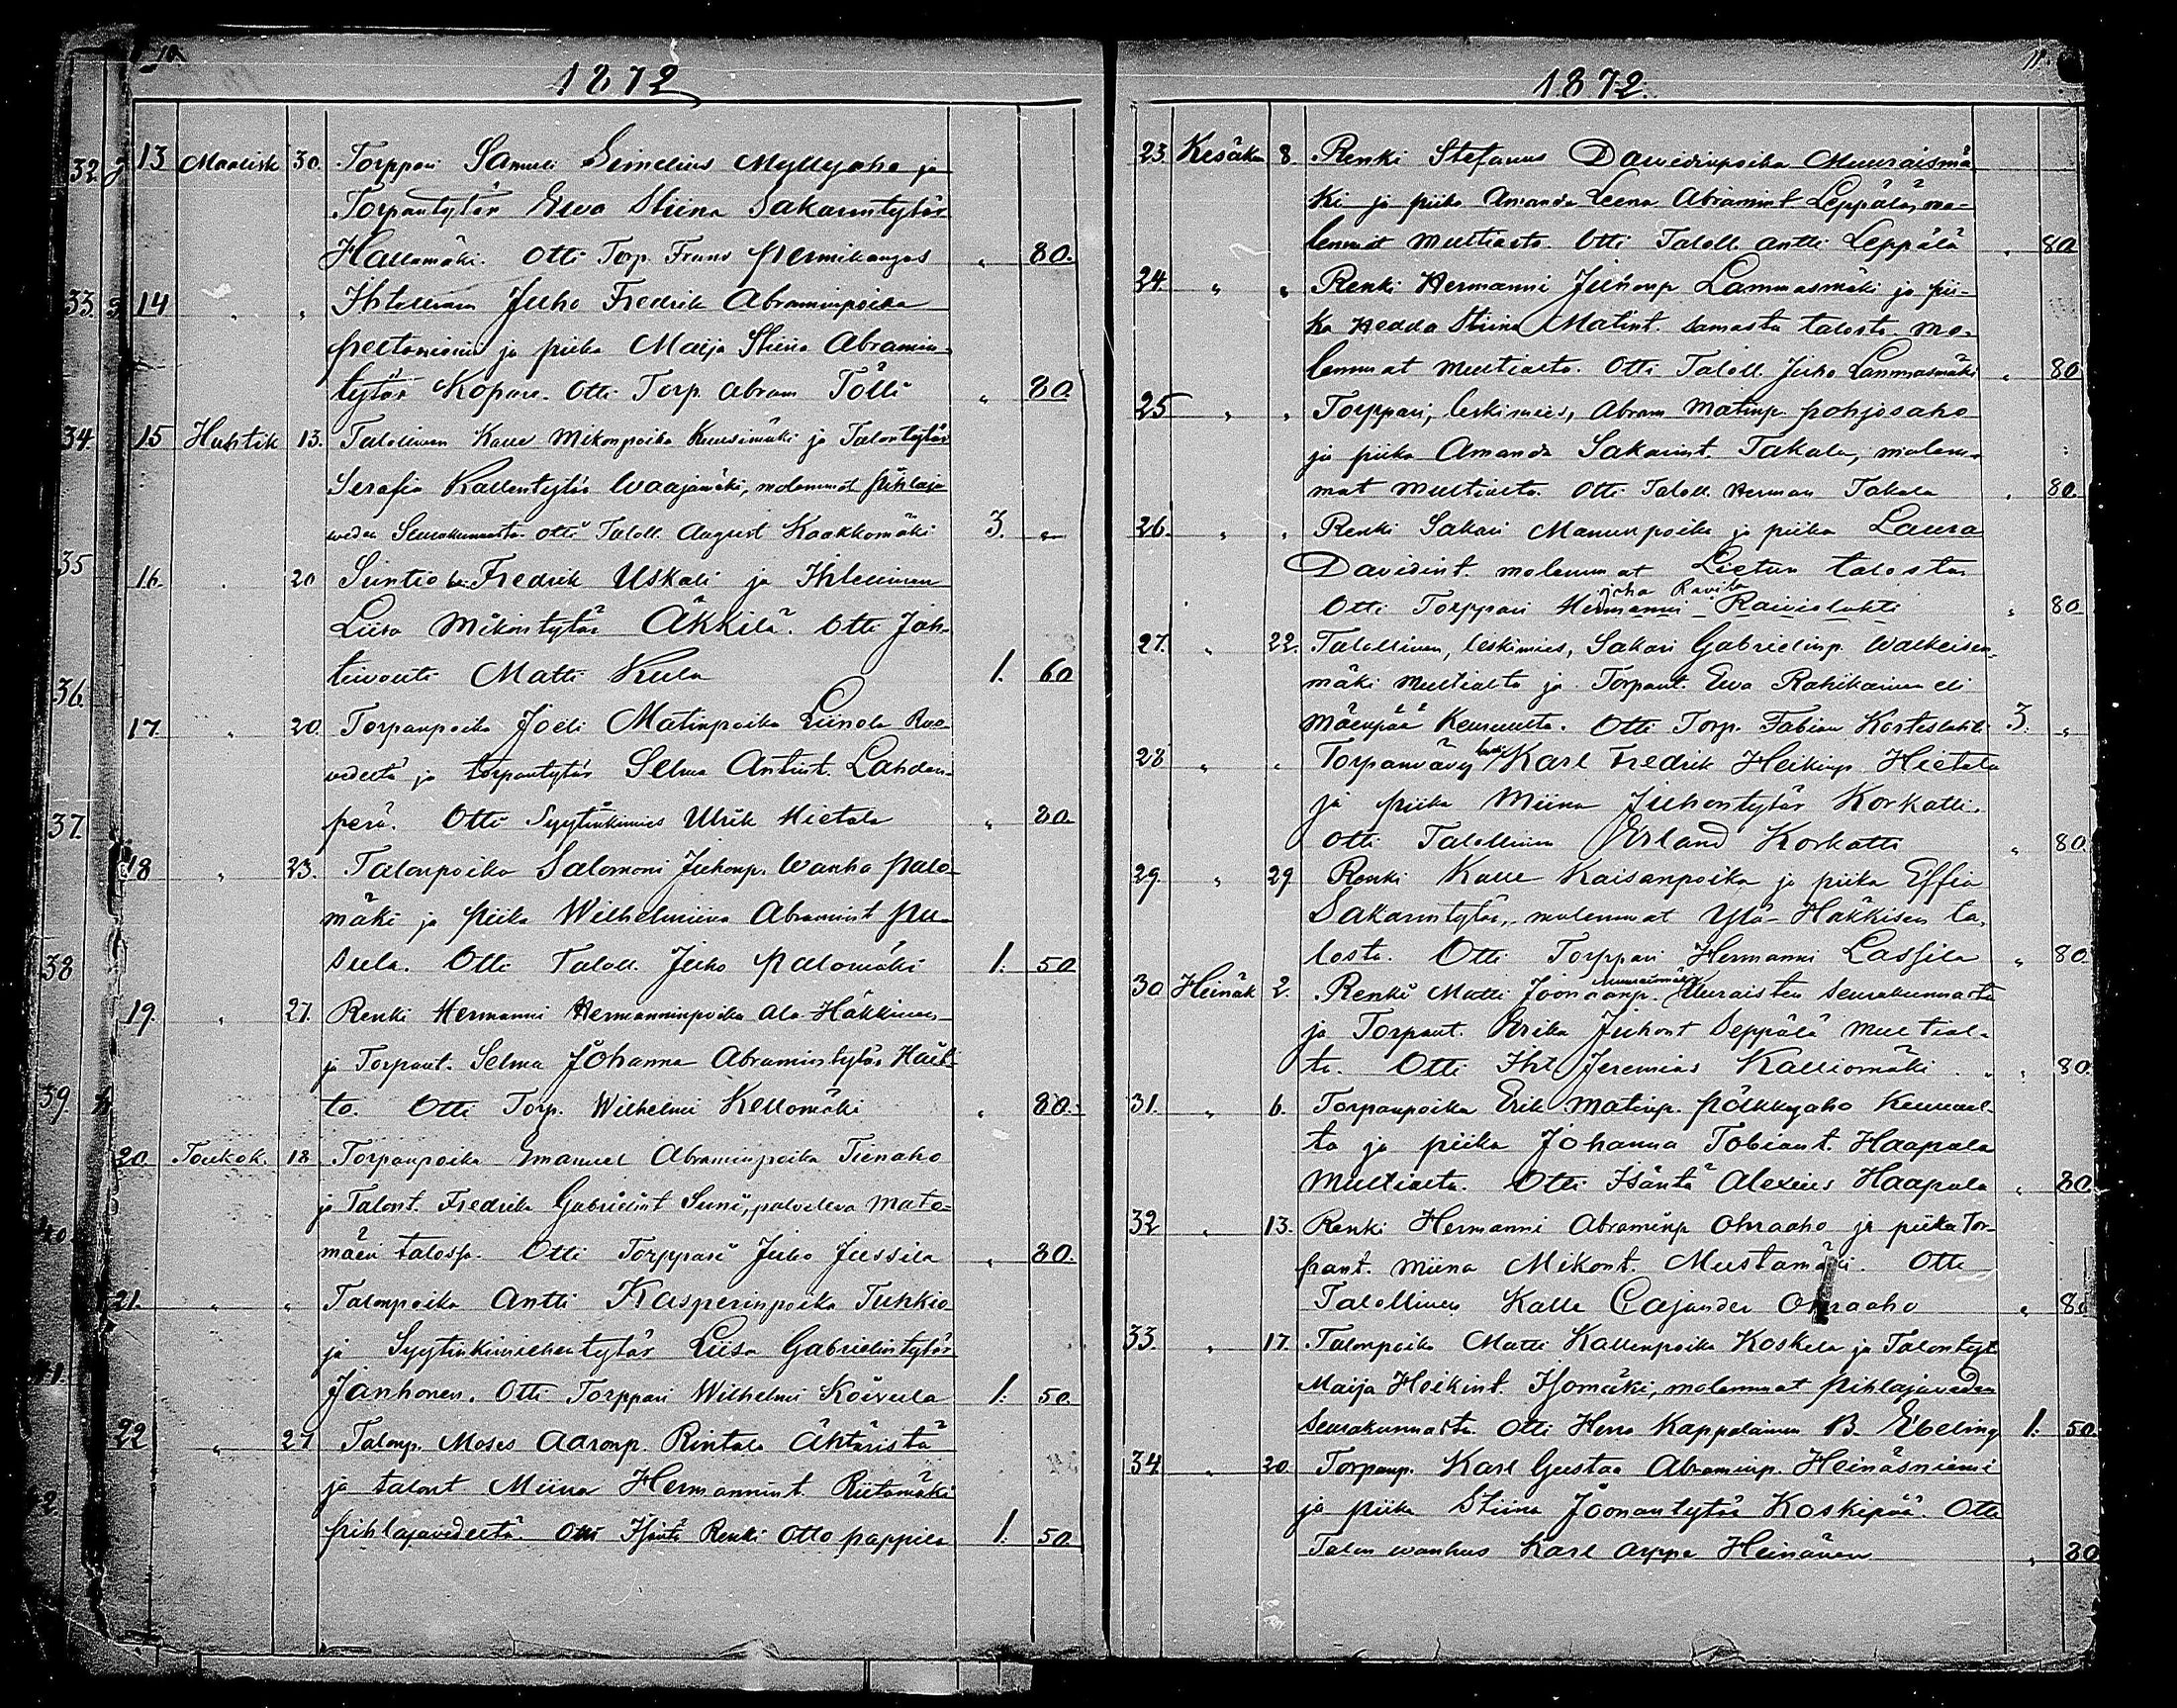 10.
1872
13 Maalisk 30. Torppari Samuli Simelius Myllyaho ja
Torpantytär Ewa Stiina Sakarintytär
Hallamäki. Otti Torp. Frans Nermikangas „ 80.
14 „ „ Ihtellinen Juho Fredrik Abraminpoika
Peltoniemi ja piika Maija Stiina Abramin-
tytär Kopare. Otti Torp. Abram Tölli „ 80.
15 Huhtik 13. Talollinen Kalle Mikonpoika Kuusimäki ja Talontytär
Serafia Kallentytär Waajamäki, molemmat Pihlaja
weden Seurakunnasta. Otti Taloll. August Kaakkomäki 3. „
16. „ 20 Suntio Fredrik Uskali ja Ihtellinen
Liisa Mikontytär Äkkilä. Otti Jah-
tivouti Matti Kula 1. 60
17. „ 20. Torpanpoika Joeli Matinpoika Liinola Ruo-
vedeltä ja torpantytär Selma Antint. Lahden-
perä. Otti Syytinkimies Ulrik Hietala „ 80.
18 „ 23. Talonpoika Salomoni Juhonp. Wanha Palo-
mäki ja Piika Wilhelmiina Abramint Pu-
sula. Otti Taloll. Juho Palomäki 1. 50
19. „ 27. Renki Hermanni Hermanninpoika Ala-Häkkinen
ja Torpant. Selma Johanna Abramintytär Hauk-
to. Otti Torp. Wilhelmi Kellomäki „ 80.
20. Toukok. 18 Torpanpoika Emanuel Abraminpoika Tienaho
ja Talont. Fredrika Gabrielint Suni, palveleva Mato-
mäen talossa. Otti Torppari Juho Jussila „ 80.
21. „ „ Talonpoika Antti Kasperinpoika Tuhkio
ja Syytinkimiehentytär Liisa Gabrielintytär
Janhonen. Otti Torppari Wilhelmi Koivula 1. 50.
22 „ 27 Talonp. Moses Aaronp. Rintala Ähtäristä
ja talont Miina Hermannint. Riitamäki
Pihlajavedeltä. Otti Renki Otto Pappila 1. 50.
32.
33.
34.
35
36.
37.
38
39.
40.
41.
42.
11.
1872.
23 Kesäkuu 8. Renki Stefanus Davidinpoika Muuraismä
ki ja piika Amanda Leena Abramint Leppälä, mo-
lemmat Multialta. Otti Taloll. Antti Leppälä „ 80
24 „ „ Renki Hermanni Juhonp Lammasmäki ja pii-
ka Hedda Stiina Matint. samasta talosta. mo-
lemmat Multialta. Otti Taloll. Juho Lammasmäki „ 80
25 „ „ Torppari, leskimies, Abram Matinp. Pohjosaho
ja piika Amanda Sakarint. Takala, molem-
mat Multialta. Otti Taloll. Herman Takala „ 80.
26. „ „ Renki Sakari Manunpoika ja piika Laura
Davidint. molemmat Lietun talosta
Otti Torppari Hermanni Raiviolahti „ 80
27. „ 22. Talollinen, leskimies, Sakari Gabrielinp. Walkeisen-
mäki Multialta ja Torpant. Ewa Rahikainen eli
Mäenpää Keuruulta. Otti Torp. Fabian Korteslahti 3. „
28 „ „ Torpanvävy leski Karl Fredrik Heikinp Hietala
ja Piika Miina Juhontytär Korkatti.
Otti Talollinen Erland Korkatti „ 80.
29. „ 29 Renki Kalle Kaisanpoika ja piika Effia
Sakarintytär, molemmat Ylä-Häkkisen ta-
losta. Otti Torppari Hermanni Lassila „ 80.
30 Heinäk 2. Renki Matti Joonaanp. Muuraisten seurakunnasta
ja Torpant. Erika Juhont Seppälä Multial-
ta. Otti Iht Jeremias Kalliomäki „ 80.
31. „ 6. Torpanpoika Erik Matinp. Päkkyaho Keuruul-
ta ja piika Johanna Tobiant. Haapala
Multialta. Otti Isäntä Alexius Haapala „ 80
32 „ 13. Renki Hermanni Abraminp Ohraaho ja piika Tor-
pant. Miina Mikont. Mustamäki. Otti
Talollinen Kalle Cajander Ohraaho „ 80
33. „ 17. Talonpoika Matti Kallenpoika Koskela ja Talontyt
Maija Heikint. Isomäki, molemmat Pihlajaveden
Seurakunnasta. Otti Herra Kappalainen B. Ebeling 1. 50.
34 „ 20 Torpanp. Karl Gustaa Abraminp. Heinäsniemi
ja piika Stiina Joonantytär Koskipää. Otti
Talon wanhus Karl Arppe Heinänen „ 80